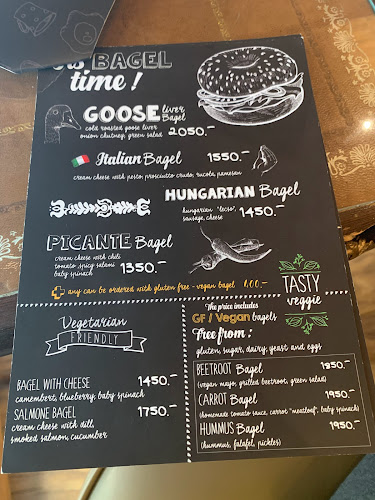 its BAGEL
time!
GOOSE liver Bagel
cold roasted goose liver
onion chutney, green salad 2050.-
Italian Bagel 1550.-
cream cheese with pesto, prosciutto crudo, rucola, pamesan
HUNGARIAN Bagel
hungarian "lecso",
sausage, cheese 1450.-
PICANTE Bagel
cream cheese with chili
tomato, spicy salami
baby spinach 1350.-
any can be ordered with gluten free - vegan bagel
TASTY
veggie
Vegetarian
FRIENDLY
BAGEL WITH CHEESE 1450.-
camembert, blueberry, baby spinach
SALMONE BAGEL 1750.-
cream cheese with dill,
smoked salmon, cucumber
The price includes
GF / Vegan bagels
Free from:
gluten, sugar, dairy, yeast and eggs
BEETROOT Bagel 1950.-
(vegan mayo, grilled beetroot, green salad)
CARROT Bagel 1950.-
(homemade tomato sauce, carrot "meatloaf", baby spinach)
HUMMUS Bagel 1950.-
(hummus, falafel, pickles)